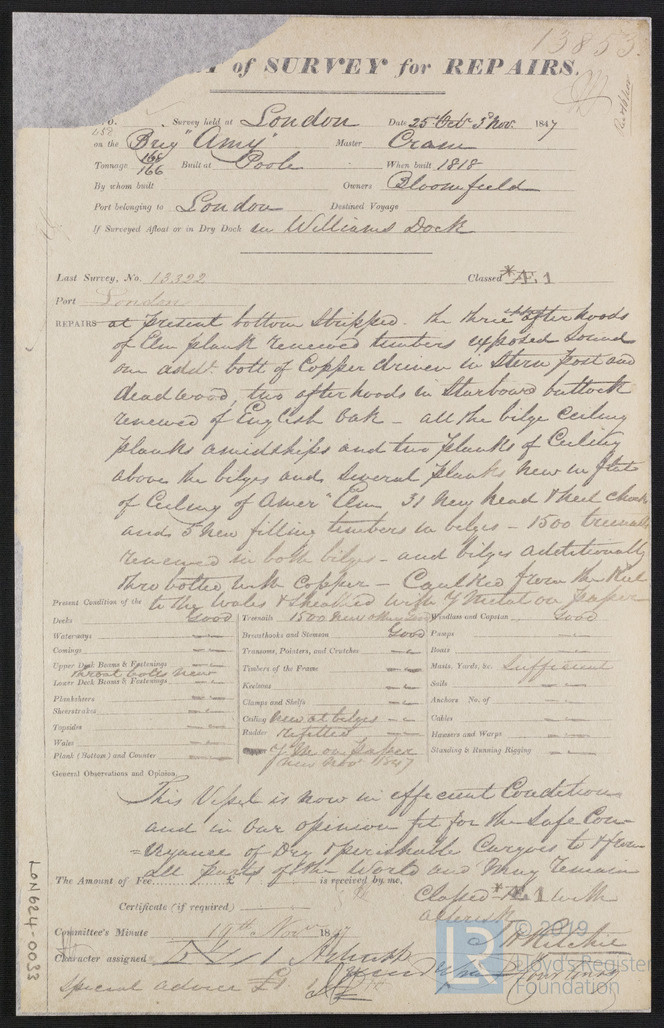 13853.
of SURVEY for REPAIRS.
o. Survey held at London Date 25 Oct. 3 Nov. 1847
on the Brig "Amy" Master Crane
Tonnage 168 166 Built at Poole When built 1818
By whom built Owners Bloomfield
Port belonging to London Destined Voyage
If Surveyed Afloat or in Dry Dock in Williams Dock
Last Survey, No. 13,322 Classed *Æ 1
Port London
REPAIRS at present bottom Stripped. the three after hoods
of Elm plank renewed timbers exposed Sound
one addl. bolt of Copper driven in Stern post and
deadwood, two after hoods in Starboard buttock
renewed of English Oak - all the bilge Ceiling
planks amidships and two planks of Ceiling
above the bilges and Several planks new in flat
of Ceiling of Amern Elm 31 new head & heel chocks
and 5 new filling timbers in bilges - 1500 treenails
renewed in both bilges - and bilges additionally
thro bolted with Copper - Caulked from the Keel
to the Wales & Sheathed with Y Metal on paper
Present Condition of the
Decks Good Treenails 1500 new Windlass and Capstan Good
Waterways Breasthooks and Stemson Good Pumps
Comings Transoms, Pointers, and Crutches Boats
Upper Deck Beams & Fastenings throat bolts new Timbers of the Frame Masts, Yards, &c. Sufficient
Lower Deck Beams & Fastenings Keelsons Sails
Planksheers Clamps and Shelfs Anchors No. of
Sheerstrakes Ceiling New at bilges Cables
Topsides Rudder Refitted Hawsers and Warps
Wales Y M on paper Standing & Running Rigging
Plank (Bottom) and Counter new Nov 1847
General Observations and Opinion,
This Vessel is now in efficient Condition
and in our opinion fit for the Safe Con-
=veyance of Dry & perishable Cargoes to & from
all parts of the World and may remain
The Amount of Fee £ is received by me, Classed *Æ 1 with
Certificate (if required) asterisk
Committee's Minute 19th Nov. 1847
Character assigned
special advice £1
LON624-0033
© 2019
LR
Lloyd's Register
Foundation